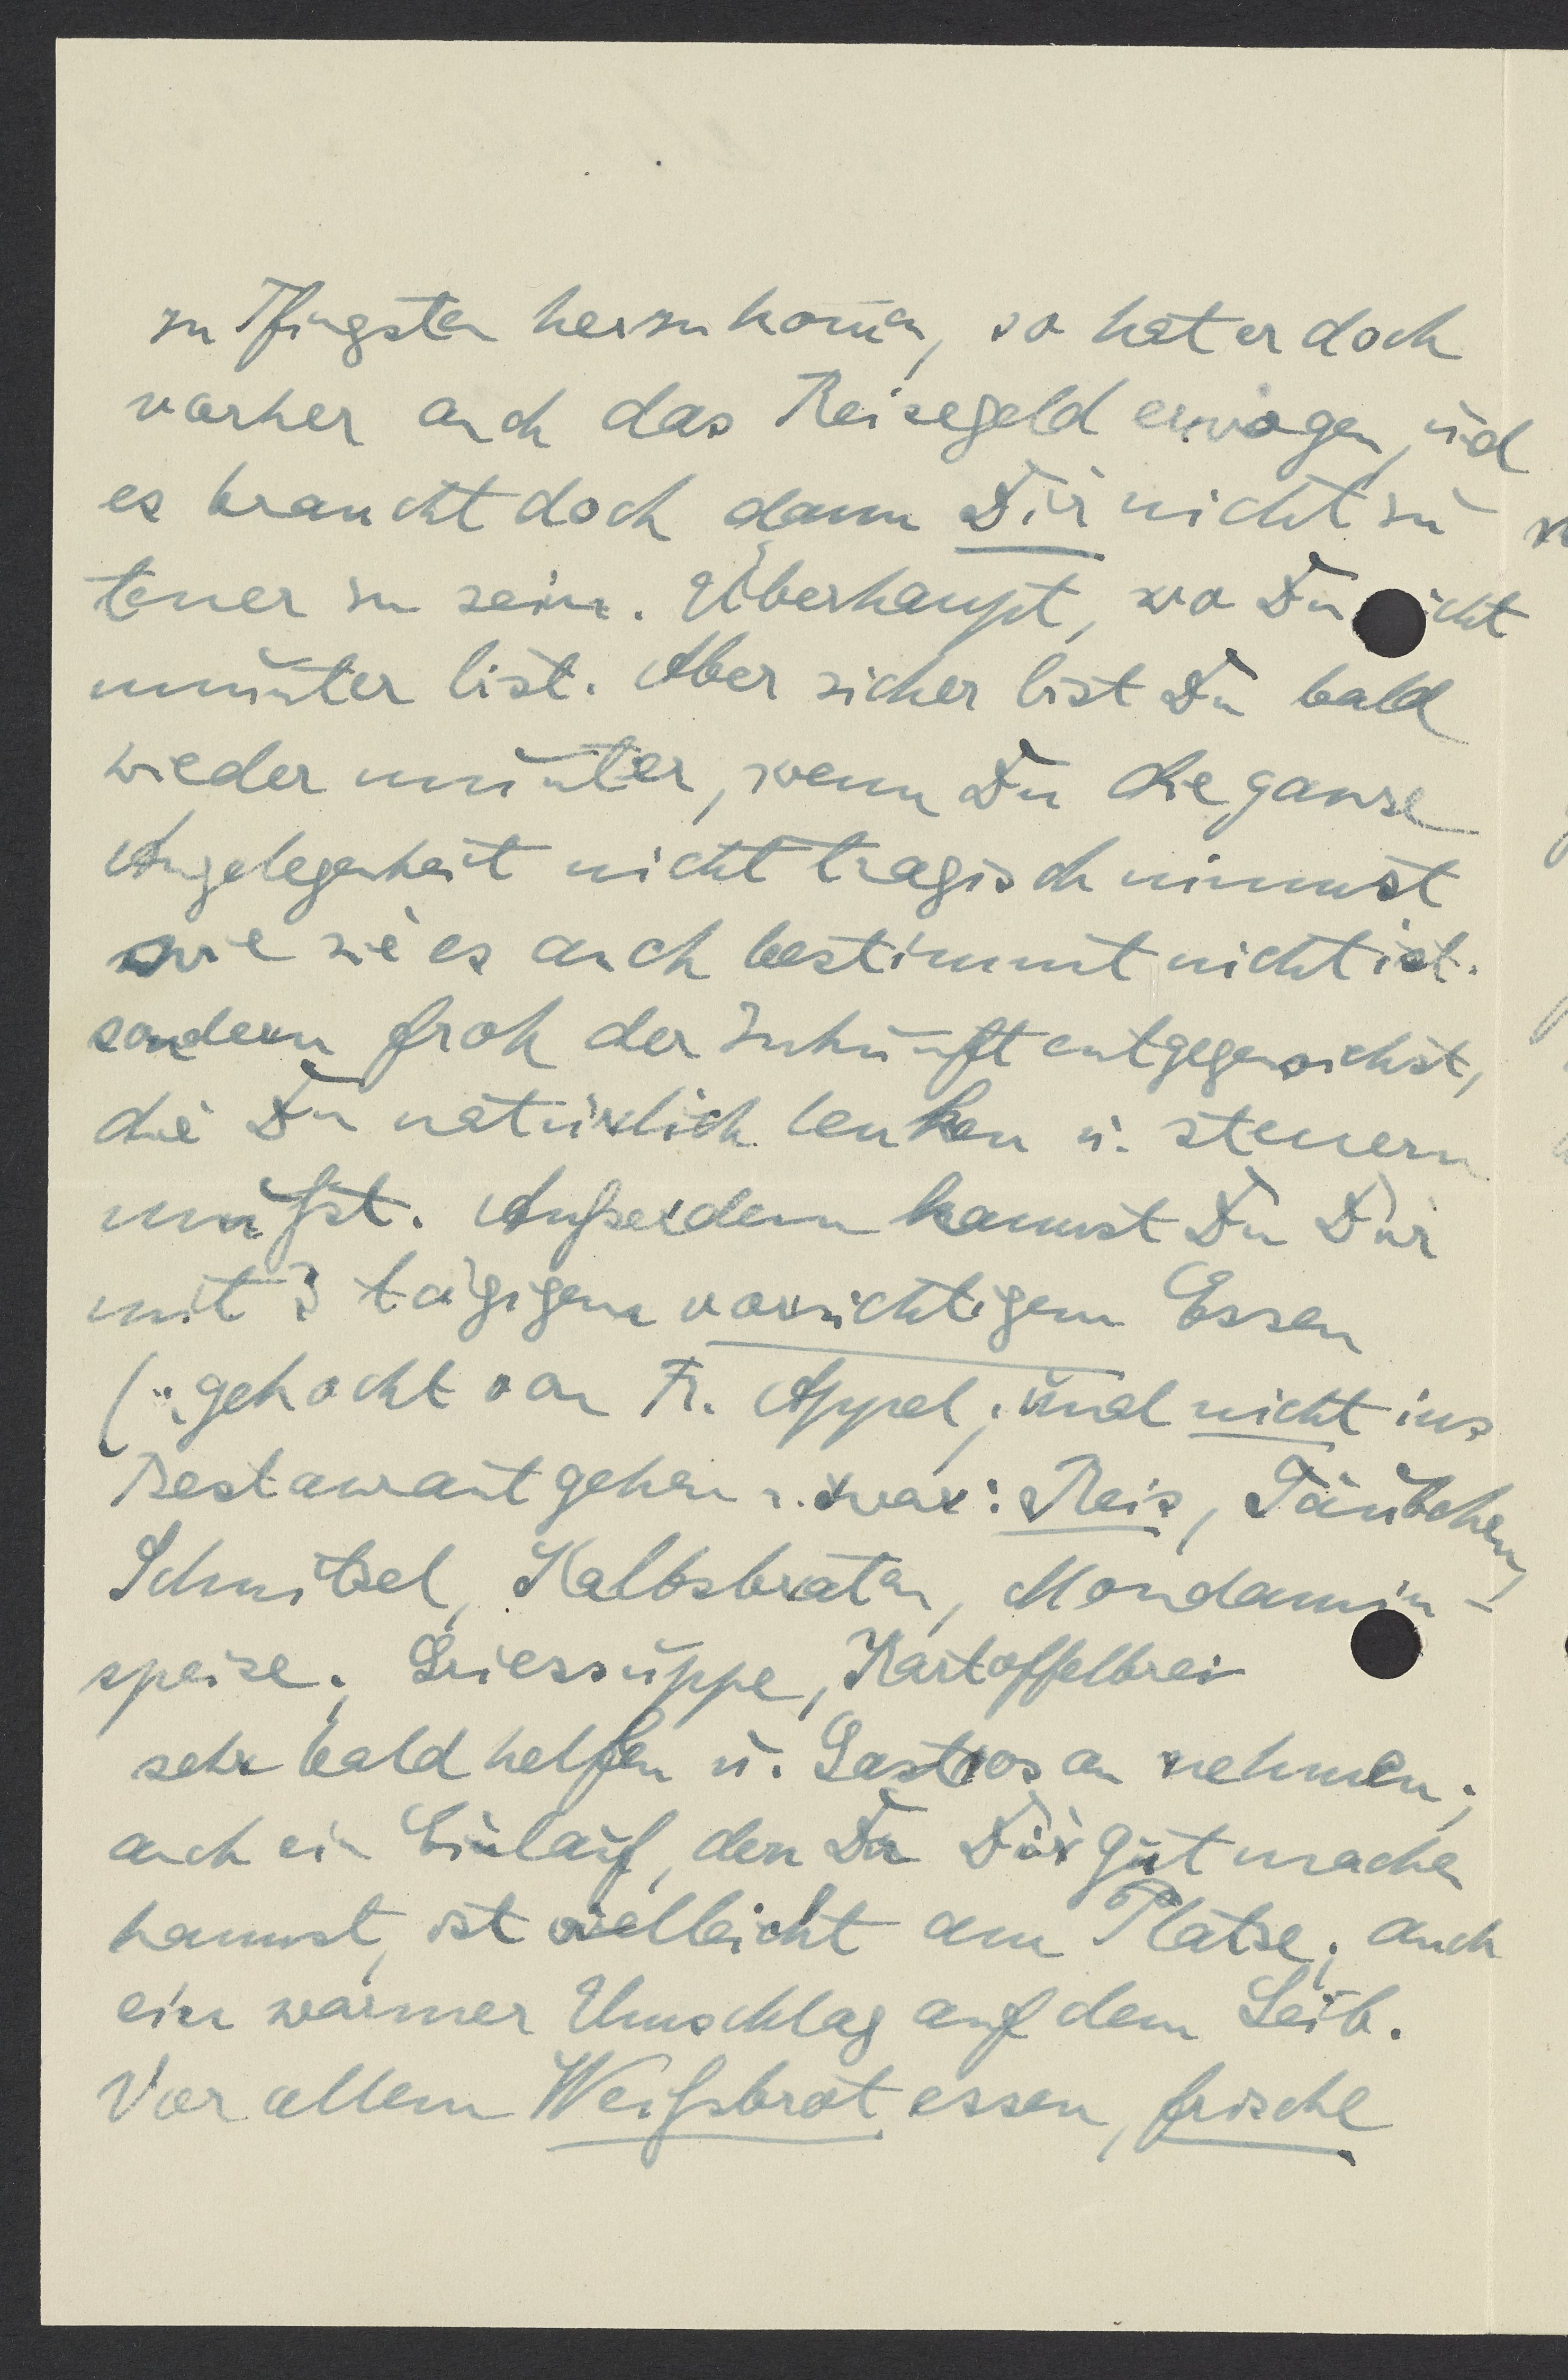 zu Pfingsten herzukom̄en, so hat er doch
vorher auch das Reisegeld erwogen, und
es braucht doch dann Dir nicht zu
teuer zu sein. Überhaupt, wo Du nicht
munter bist. Aber sicher bist Du bald
wieder munter, wenn Du die ganze
Angelegenheit nicht tragisch nimmst
wie sie es auch bestimmt nicht ist.
sondern froh der Zukunft entgegensiehst,
die Du natürlich lenken u. steuern
mußt. Außerdem kannst Du Dir
mit 3 tägigem vorsichtigem Essen
(gekocht von Fr. Appel, und nicht ins
Restaurant gehen u. zwar: Reis, Täubchen,
Schnitzel, Kalbsbraten, Mondamin-
speise, Griessuppe, Kartoffelbrei
sehr bald helfen u. Gastrosan nehmen;
auch ein Einlauf, den Du Dir gut machen
kannst, ist vielleicht am Platze; auch
ein warmer Umschlag auf dem Leib.
Vor allem Weißbrot essen, frische